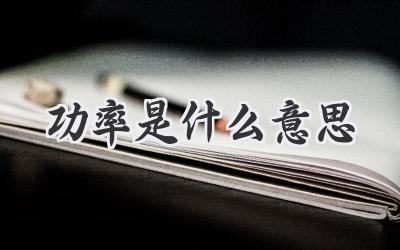 功率是什么意思